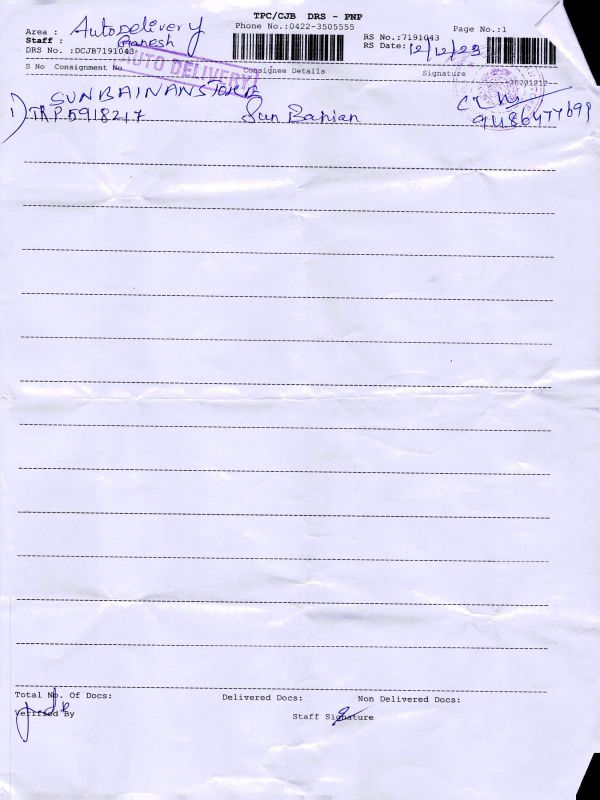 TPC/CJB DRS - PNP
Area : Autodelivery
Phone No.:0422-3505555
Page No.:1
Staff : Ganesh
RS No.:7191043
DRS No. :DCJB7191043
RS Date: 12/12/23
AUTO DELIVERY
S No Consignment No
Consignee Details
Signature
20201212
SUNBAINANSTORE
1) TRP5918217
Sun Banian
9486477699
Total No. Of Docs:
Delivered Docs:
Non Delivered Docs:
Verified By
Staff Signature